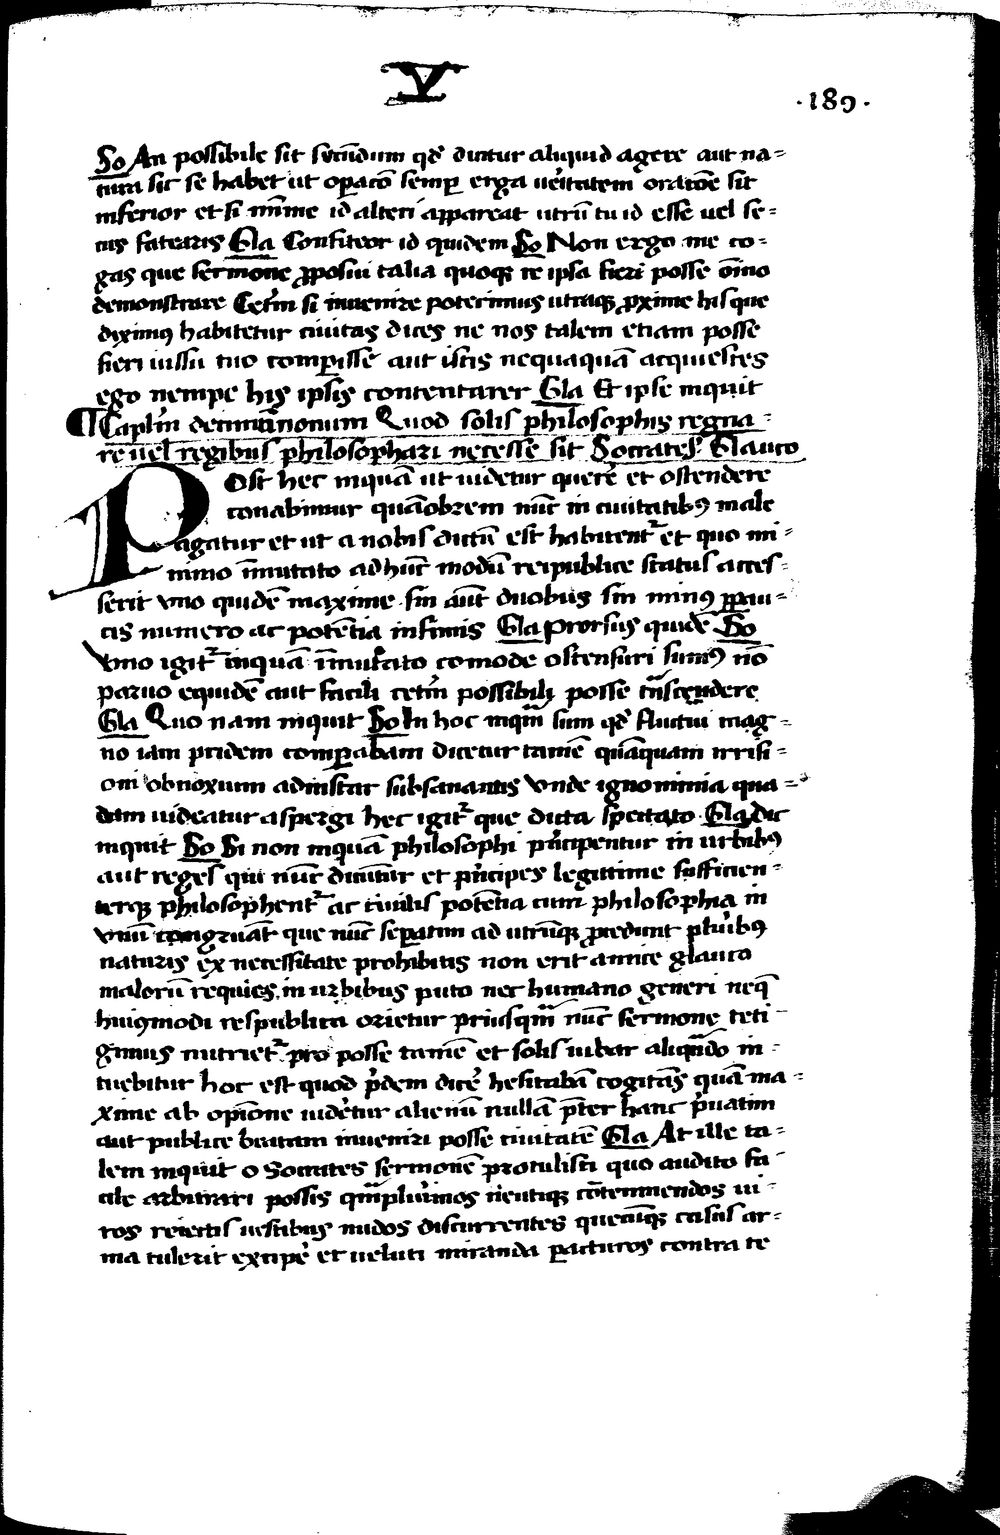 V
·189·
So An possibile sit secūdum qd̄ dicitur aliquid agere aut na=
tura sic se habet ut op̄acō semp̄ erga ueritatem oratōe sit
inferior et si mīme id alteri appareat utrū tu id esse uel se=
cus fatearis Gla Confiteor id quidem So Non ergo me co=
gas que sermone ꝓposui talia quoqꝫ re ipsa fieri posse ōino
demonstrare Cetm̄ si inuenire poterimus utcūqꝫ ꝓxime his que
diximꝰ habitetur ciuitas dices ne nos talem etiam posse
fieri iussu tuo comp̄isse aut istis nequaquā acquiesces
ego nempe his ipsis contentarer Gla Et ipse inquit
¶ Caplm̄ decimūnonum Quod solis philosophis regna=
re uel regibus philosophari necesse sit Socrates Glauco
Post hec inquā ut uidetur querē et ostendere
conabimur quāobrem nūc in ciuitatibꝰ male
agatur et ut a nobis dictū est habitent᷑ et quo mi=
nimo īmutato ad hūc modū reipublice status acces=
serit vno quidē maxime sin aūt duobus sin minꝰ ꝑpau=
cis numero ac potētia infimis Gla Prorsus quidē So
Vno igit᷑ inquā īmutato comode ostensuri sumꝰ nō
paruo equidē aut facili cetm̄ possibili posse trāscendere
Gla Quo nam inquit So In hoc inqm̄ sum qd̄ fluctui mag=
no iam pridem comp̄abam dicetur tamē quāquam irrisi=
oni obnoxium adinstar subsanantis vnde ignominia qua=
dam uideatur aspergi hec igit᷑ que dicta spectato Gla dic
inquit So Si non inquā philosophi p̄ncipentur in urbibꝰ
aut reges qui nūc dicūtur et p̄ncipes legittime sufficien=
terqꝫ philosophent᷑ ac ciuilis potētia cum philosophia in
vnū congruāt que nūc sep̄atim ad utrūqꝫ ꝓcedunt pluribꝰ
naturis ex necessitate prohibitis non erit amice glauco
malorū requies in urbibus puto nec humano generi neqꝫ
huiꝰmodi respublica orietur priusqm̄ nūc sermone teti=
gimus nutriet᷑ pro posse tamē et solis iubar aliqn̄do in=
tuebitur hoc est quod p̄dem dicē hesitabā cogitās quā ma=
xime ab opīone uidetur alienū nullā p̄ter hanc p̄uatim
aut publice beatam inueniri posse ciuitatē Gla At ille ta=
lem inquit o Socrates sermonē protulisti quo audito fa=
cile arbitrari possis qm̄plurimos nēutiqꝫ cōtemnendos ui=
ros reiectis uestibus nudos discurrentes quecūqꝫ casus ar=
ma tulerit excipē et ueluti miranda p̄acturos contra te